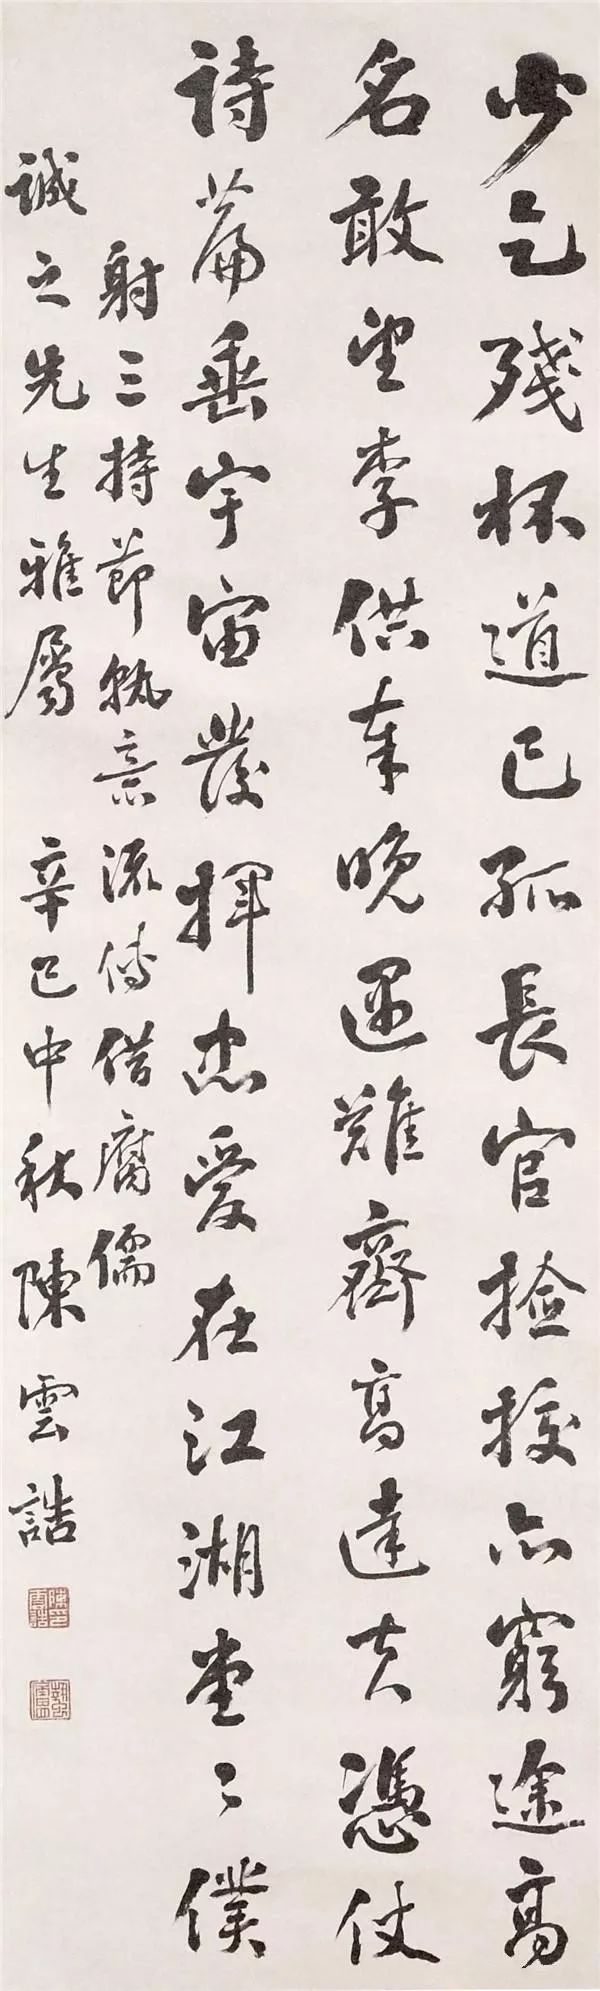 少乞殘杯道已孤長官撿挍亦窮途高
名敢望李供奉晚遇難齊高達夫憑仗
詩篇垂宇宙發揮忠愛在江湖堂〻僕
射三持節孰意流傳借腐儒
誠之先生雅屬 辛巳中秋陳雲誥
陳印雲誥